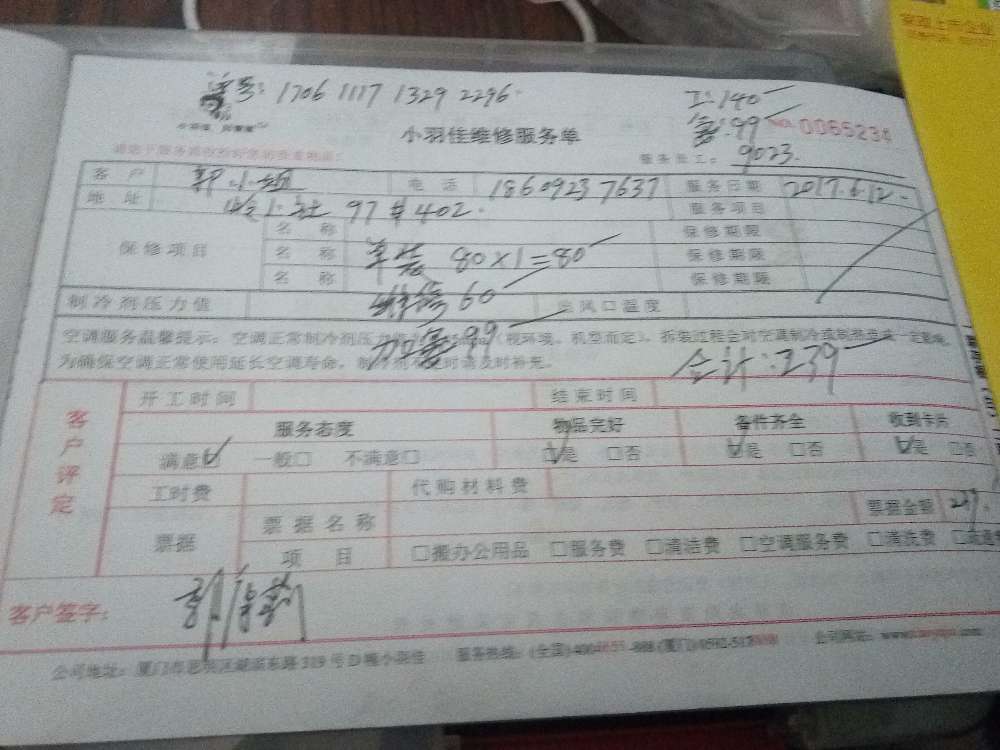 单号: 1706 1117 1329 2296.
工:140
99 No 0065234
小羽佳维修服务单
服务员工: 9023.
客户 郭小姐 电话 18609237637 服务日期 2017.6.12.
地址 97#402. 服务项目
保修项目 名称 保修期限
名称 单装 80×1=80 保修期限
名称 维修 60 保修期限
制冷剂压力值 出风口温度
99
空调服务温馨提示:空调正常制冷剂压力 (视环境、机型而定),拆装过程会对空调制冷或制热造成一定影响,
为确保空调正常使用延长空调寿命,制冷剂不足时请及时补充。
合计:239
客户评定
开工时间 结束时间
服务态度 物品完好 备件齐全 收到卡片
满意☑ 一般□ 不满意□ ☑是 □否 ☑是 □否 ☑是 □否
工时费 代购材料费
票据 票据名称 票据金额 239.
项目 □搬办公用品 □服务费 □清洁费 □空调服务费 □清洗费
客户签字:
公司地址:厦门市思明区湖滨东路319号D幢小羽佳 服务热线:(全国)400 (厦门)0592- 公司网址:www.